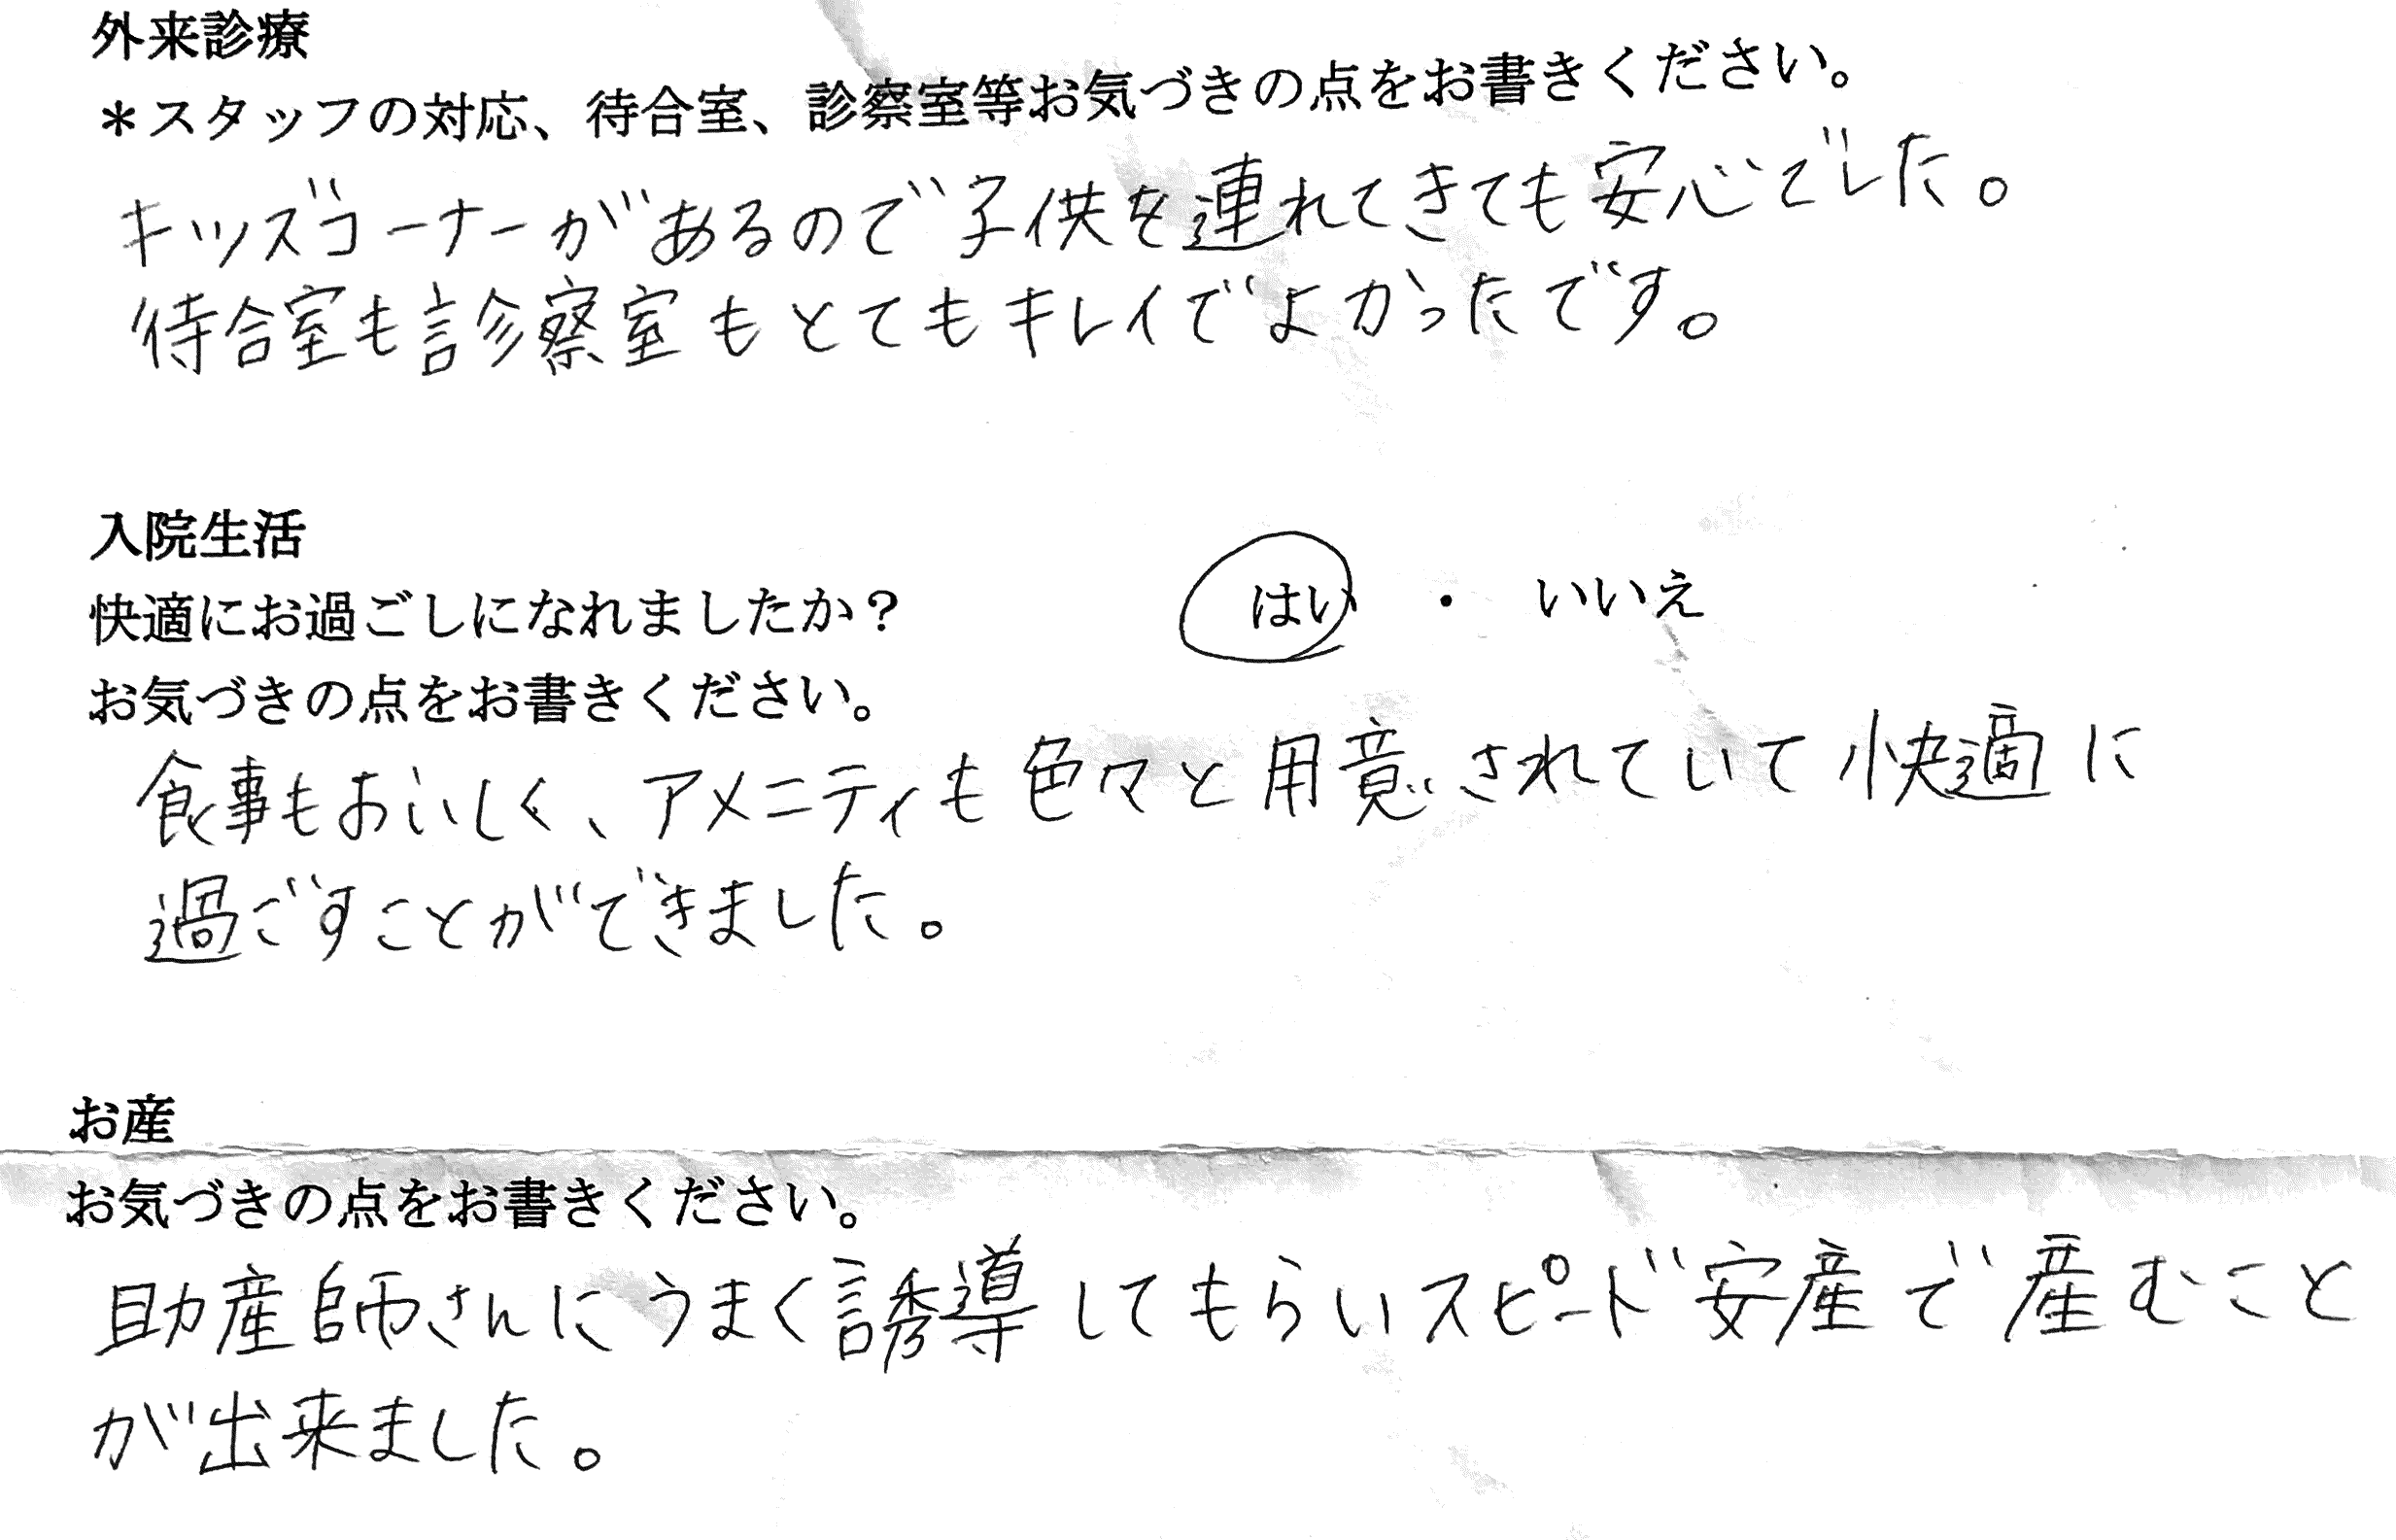 外来診療
＊スタッフの対応、待合室、診察室等お気づきの点をお書きください。
キッズコーナーがあるので子供を連れてきても安心でした。
待合室も診察室もとてもキレイでよかったです。
入院生活
快適にお過ごしになれましたか？ はい ・ いいえ
お気づきの点をお書きください。
食事もおいしく、アメニティも色々と用意されていて快適に
過ごすことができました。
お産
お気づきの点をお書きください。
助産師さんにうまく誘導してもらいスピード安産で産むこと
が出来ました。